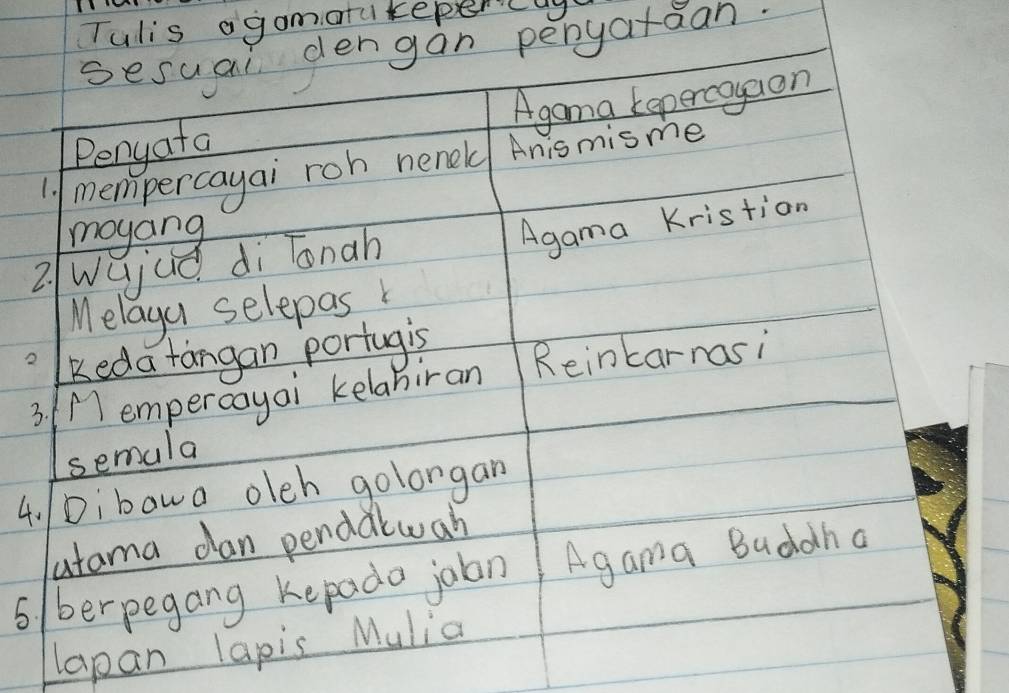 Tulis agamatukepercay
sesuai dengan penyataan.
Penyata Agama kepercayaan
1. mempercayai roh nenek Anismisme
moyang
2. Wujud di Tanah Agama Kristian
Melayu selepas k
kedatangan portugis
3. Mempercayai kelahiran Reinkarnasi
semula
4. Dibawa oleh golongan
utama dan pendakwah
5. berpegang kepada jalan Agama Buddha
lapan lapis Mulia